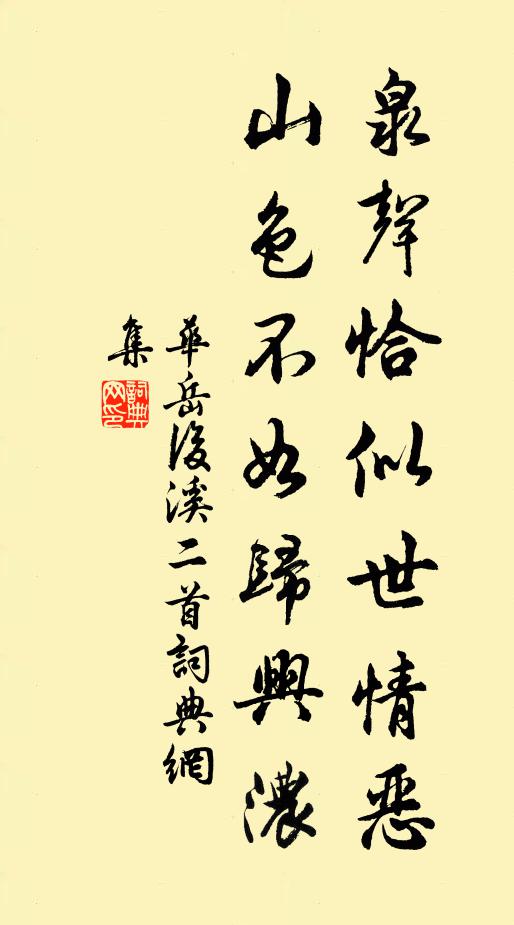 泉聲恰似世情惡
山色不如歸興濃
華岳後溪二首詞典網
集
詞典
网印